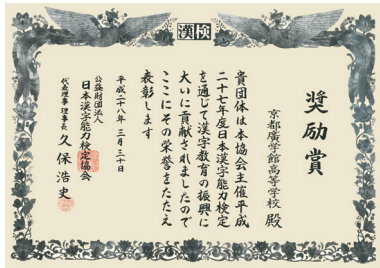 漢検
奨励賞
京都廣学館高等学校 殿
貴団体は本協会主催平成
二十七年度日本漢字能力検定
を通じて漢字教育の振興に
大いに貢献されましたので
ここにその栄誉をたたえ
表彰します
平成二十八年 三月三十日
公益財団法人
日本漢字能力検定協会
代表理事 理事長 久保浩史